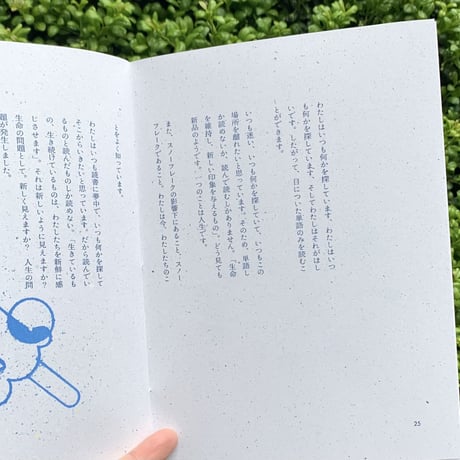 わたしは、いつも何かを探しています。わたしはいつ
も何かを探しています。そしてわたしはそれがほし
いです。したがって、目についた単語のみを読むこ
とができます。
いつも迷い、いつも何かを探していて、いつもこの
場所を離れたいと思っています。そのため、単語し
か読めないか、読んで読むしかありません。「生命
を維持し、新しい印象を与えるもの」。どう見ても
新品のようです。一つのことは人生です。
また、スノーフレークの影響下にあること、スノー
フレークであること。わたしは今、わたしたちのこ
とをよく知っています。
わたしはいつも読書に夢中で、いつも何かを探して
そこからいきたいと思っています。だから読んでい
るものと読んだものしか読めない。「生きているも
の、生き続けているものは、わたしたちを新鮮に感
じさせます」。それは新しいように見えますか？
生命の問題として、新しく見えますか？　人生の問
題が発生しました。
25